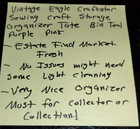 Vintage Eagle Craftstor
Sewing Craft Storage
Organizer Tote Bin Teal
Purple Pink
- Estate Find Market
Fresh
- No Issues might need
Some Light Cleaning
- Very Nice Organizer
Must for Collector or
Collection!